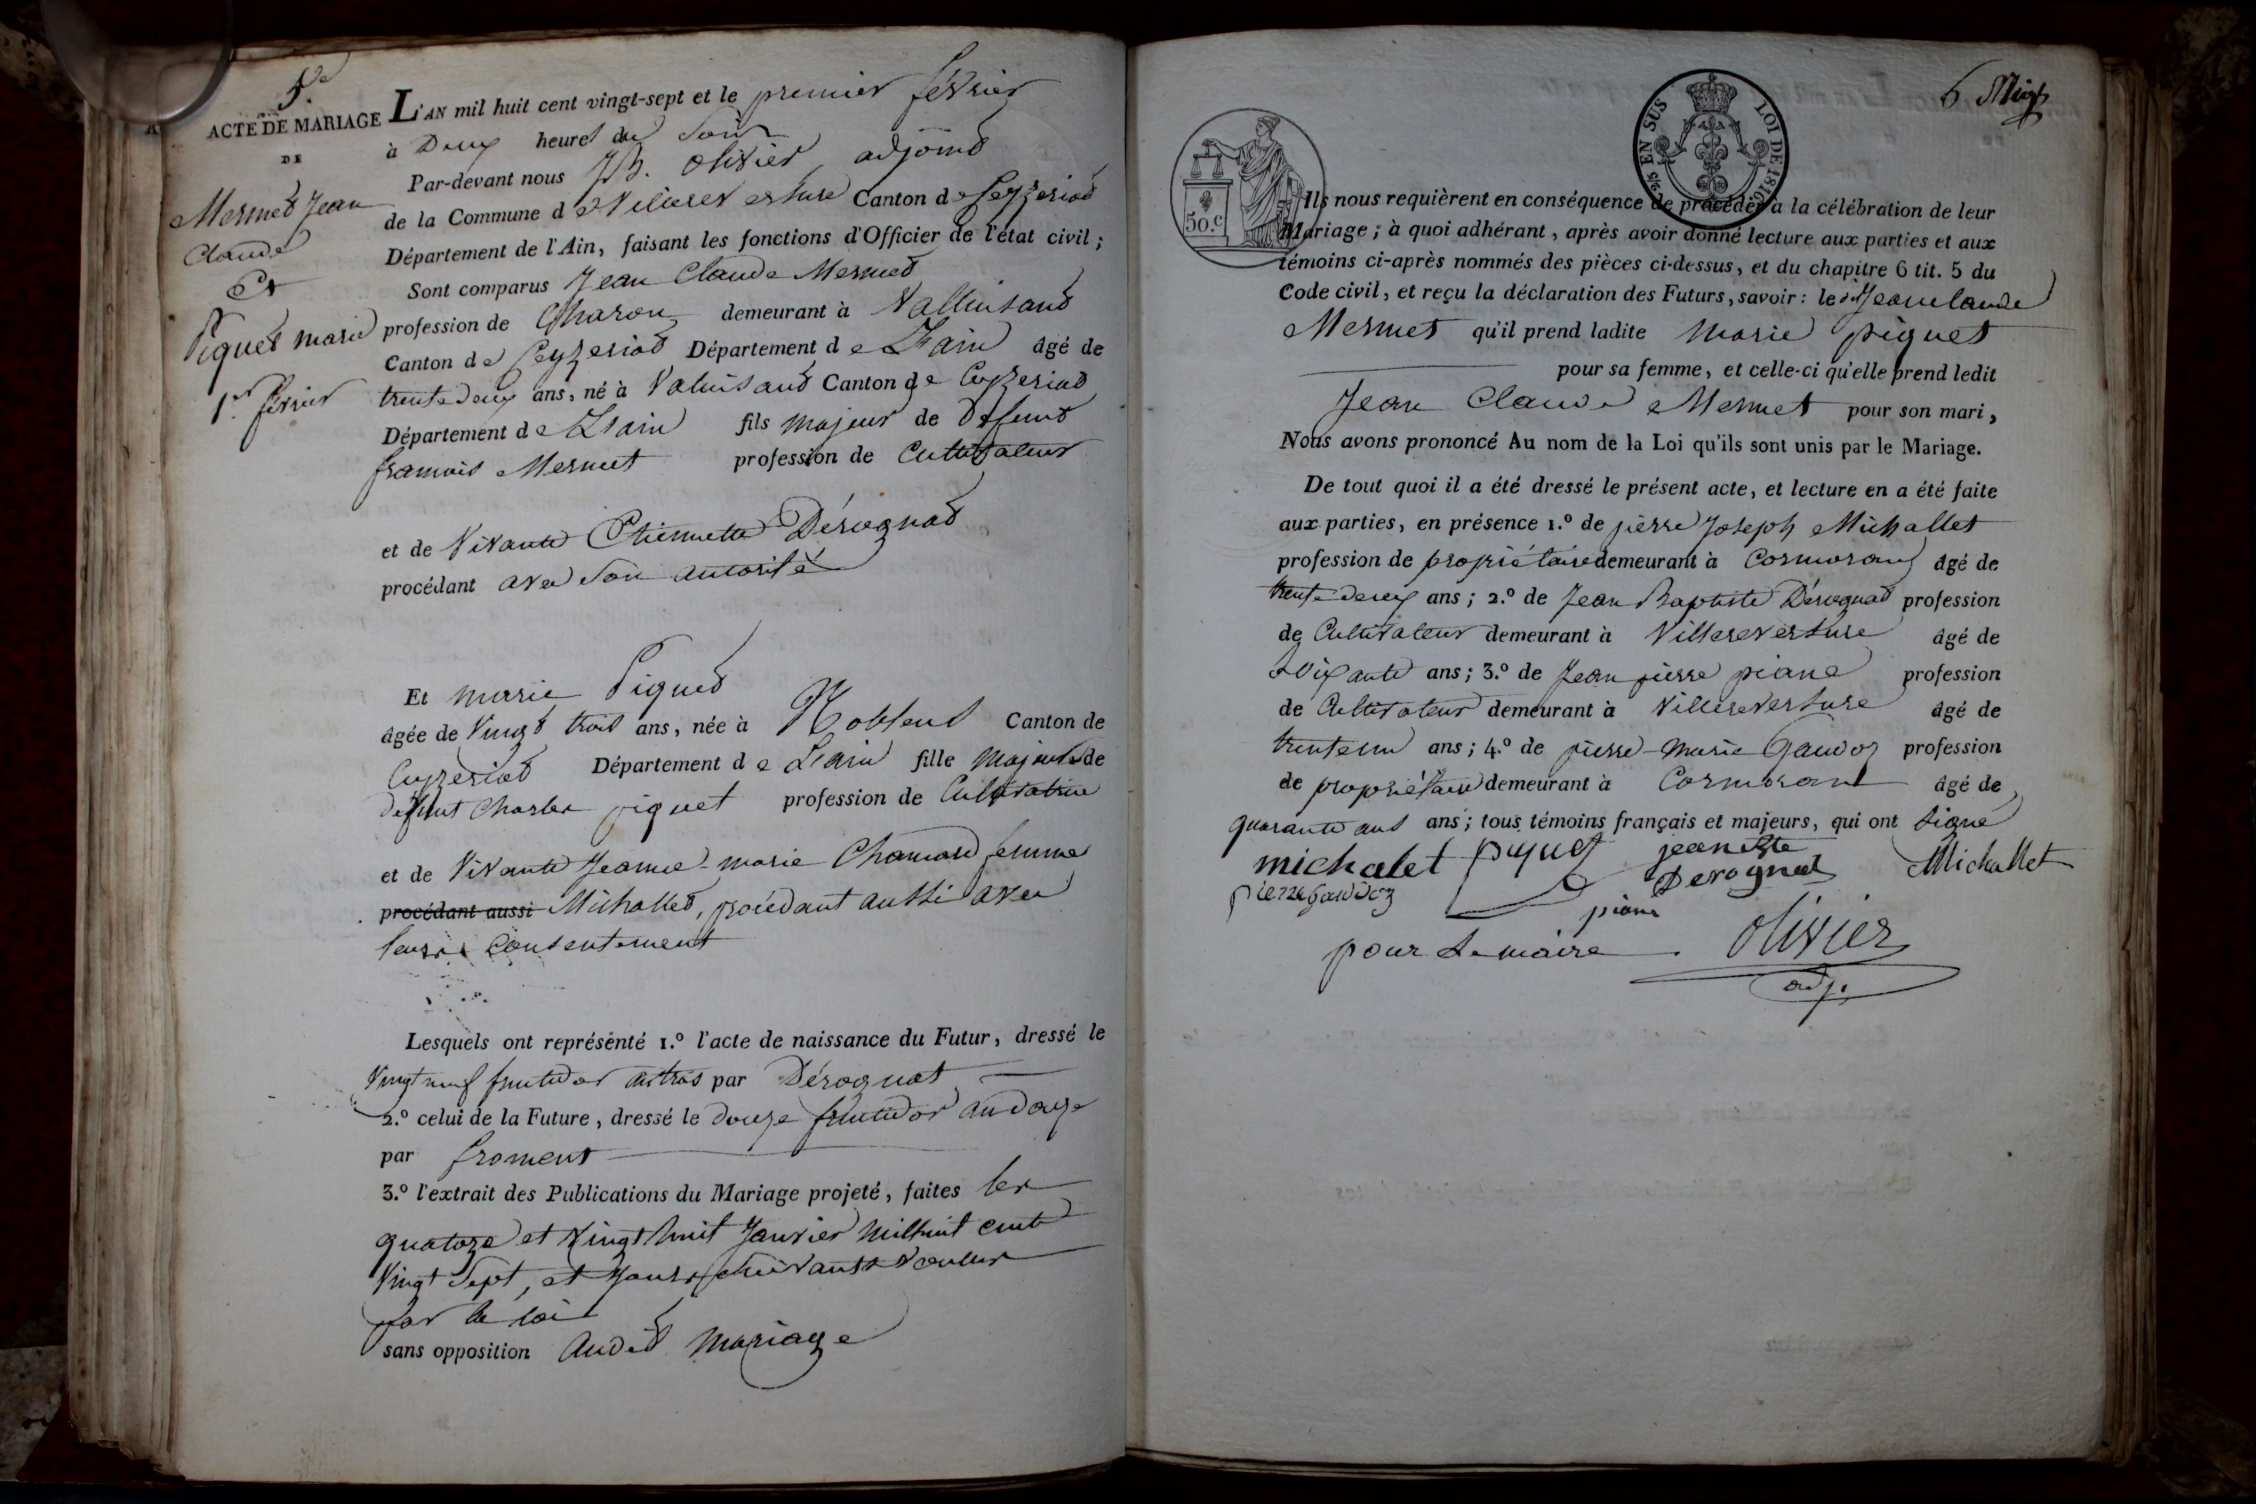 5.e
ACTE DE MARIAGE
DE
Mermet Jean
Claude
Et
Piquet marie
1.er février
L'AN mil huit cent vingt-sept et le premier février
à Deux heures du Soir
Par-devant nous JB. olivier adjoint
de la Commune de Villereversure Canton de Ceyzeriat
Département de l'Ain, faisant les fonctions d'Officier de l'état civil;
Sont comparus Jean Claude Mermet
profession de Charon demeurant à
Canton de Ceyzeriat Département de L'ain âgé de
trente deux ans, né à Canton de Ceyzeriat
Département de L'ain fils majeur de Defunt
francois Mermet profession de Cultivateur
et de Vivante Etiennette Dérognat
procédant avec Son autorité
Et marie Piquet
âgée de Vingt trois ans, née à Canton de
Ceyzeriat Département de L'ain fille majeure de
défunt Charles piquet profession de Cultivatrice
et de Vivante Jeanne-marie femme
procédant aussi Michallet, procédant aussi avec
leurs Consentement
Lesquels ont représenté 1.º l'acte de naissance du Futur, dressé le
Vingt neuf fructidor an trois par Dérognat
2.º celui de la Future, dressé le douze fructidor an douze
par froment
3.º l'extrait des Publications du Mariage projeté, faites les
quatorze et Vingt huit Janvier mil huit cent
Vingt Sept, et Jours suivants voulus
par la loi
sans opposition audit mariage
6 Mig
50.c
2/5 EN SUS LOI DE 1816
Ils nous requièrent en conséquence de procéder à la célébration de leur
Mariage; à quoi adhérant, après avoir donné lecture aux parties et aux
témoins ci-après nommés des pièces ci-dessus, et du chapitre 6 tit. 5 du
Code civil, et reçu la déclaration des Futurs, savoir: ledit Jean claude
Mermet qu'il prend ladite marie piquet
pour sa femme, et celle-ci qu'elle prend ledit
Jean Claude Mermet pour son mari,
Nous avons prononcé Au nom de la Loi qu'ils sont unis par le Mariage.
De tout quoi il a été dressé le présent acte, et lecture en a été faite
aux parties, en présence 1.º de pierre Joseph Michallet
profession de propriétaire demeurant à Cormoran âgé de
trente deux ans; 2.º de Jean Baptiste Dérognat profession
de Cultivateur demeurant à Villereversure âgé de
Soixante ans; 3.º de Jean pierre piane profession
de Cultivateur demeurant à Villereversure âgé de
trente un ans; 4.º de pierre-marie Gaudoz profession
de propriétaire demeurant à Cormorant âgé de
quarante ans ans; tous témoins français et majeurs, qui ont Signé
michalet piquet jean Bte Michallet
pierre gaudoz Derognat
piane
pour Le maire olivier
adj.